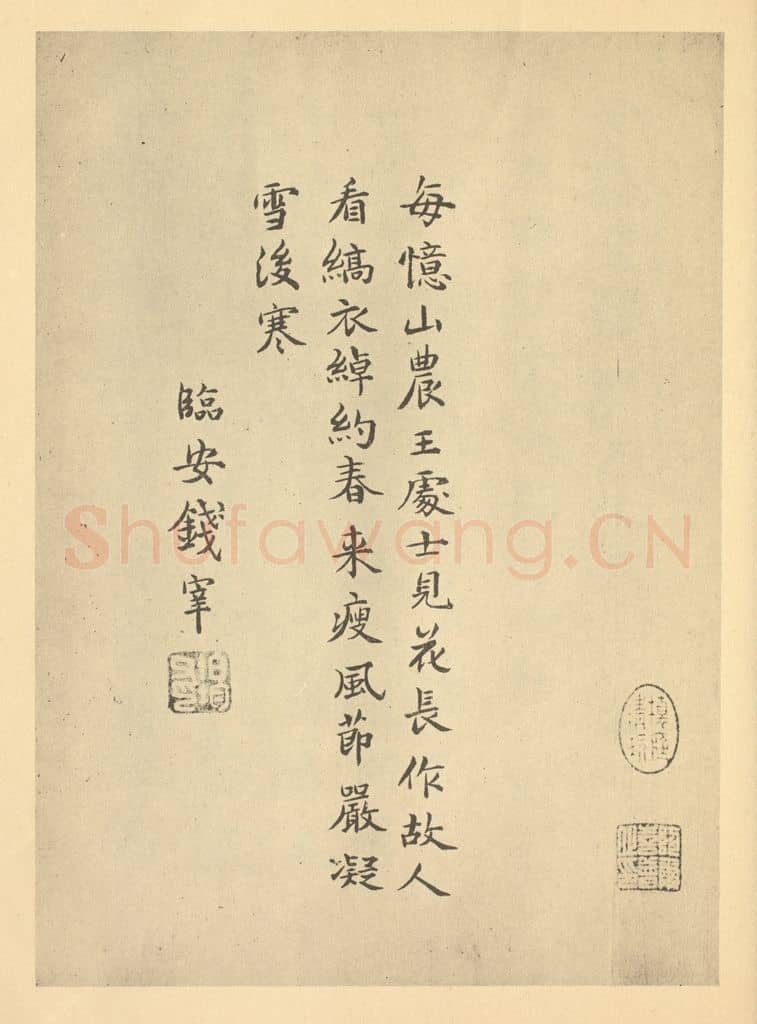 每憶山農王處士見花長作故人
看縞衣綽約春来瘦風節嚴凝
雪後寒
臨安錢宰
Shufawang.CN